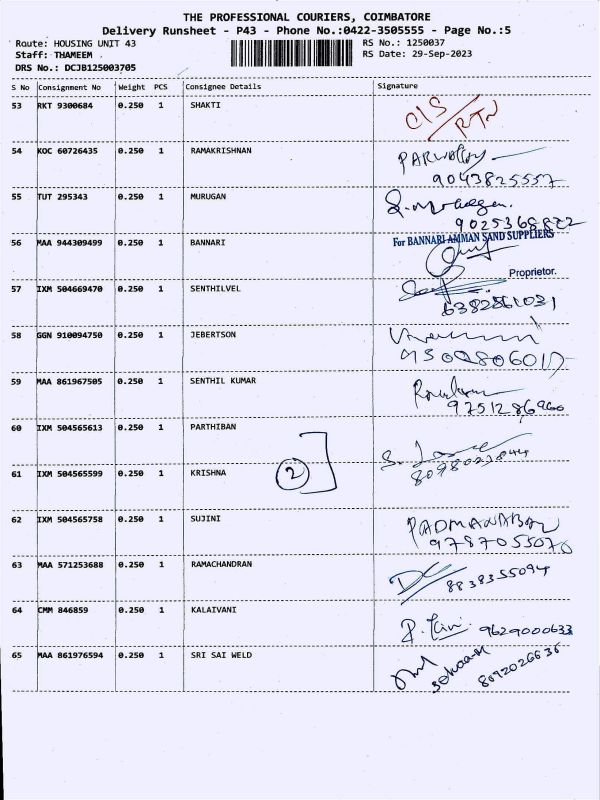 THE PROFESSIONAL COURIERS, COIMBATORE
Delivery Runsheet - P43 - Phone No.:0422-3505555 - Page No.:5
Route: HOUSING UNIT 43 RS No.: 1250037
Staff: THAMEEM RS Date: 29-Sep-2023
DRS No.: DCJB125003705
S No Consignment No Weight PCS Consignee Details Signature
53 RKT 9300684 0.250 1 SHAKTI C/S
RTN
54 KOC 60726435 0.250 1 RAMAKRISHNAN
9043825557
55 TUT 295343 0.250 1 MURUGAN
9025368872
56 MAA 944309499 0.250 1 BANNARI For BANNARI AMMAN SAND SUPPLIERS
Proprietor.
57 IXM 504669470 0.250 1 SENTHILVEL
6382561031
58 GGN 910094750 0.250 1 JEBERTSON
59 MAA 861967505 0.250 1 SENTHIL KUMAR
9751286960
60 IXM 504565613 0.250 1 PARTHIBAN
2
61 IXM 504565599 0.250 1 KRISHNA
62 IXM 504565758 0.250 1 SUJINI PADMANABAN
9787055070
63 MAA 571253688 0.250 1 RAMACHANDRAN
8838355094
64 CMM 846859 0.250 1 KALAIVANI
9629000633
65 MAA 861976594 0.250 1 SRI SAI WELD
8092026636